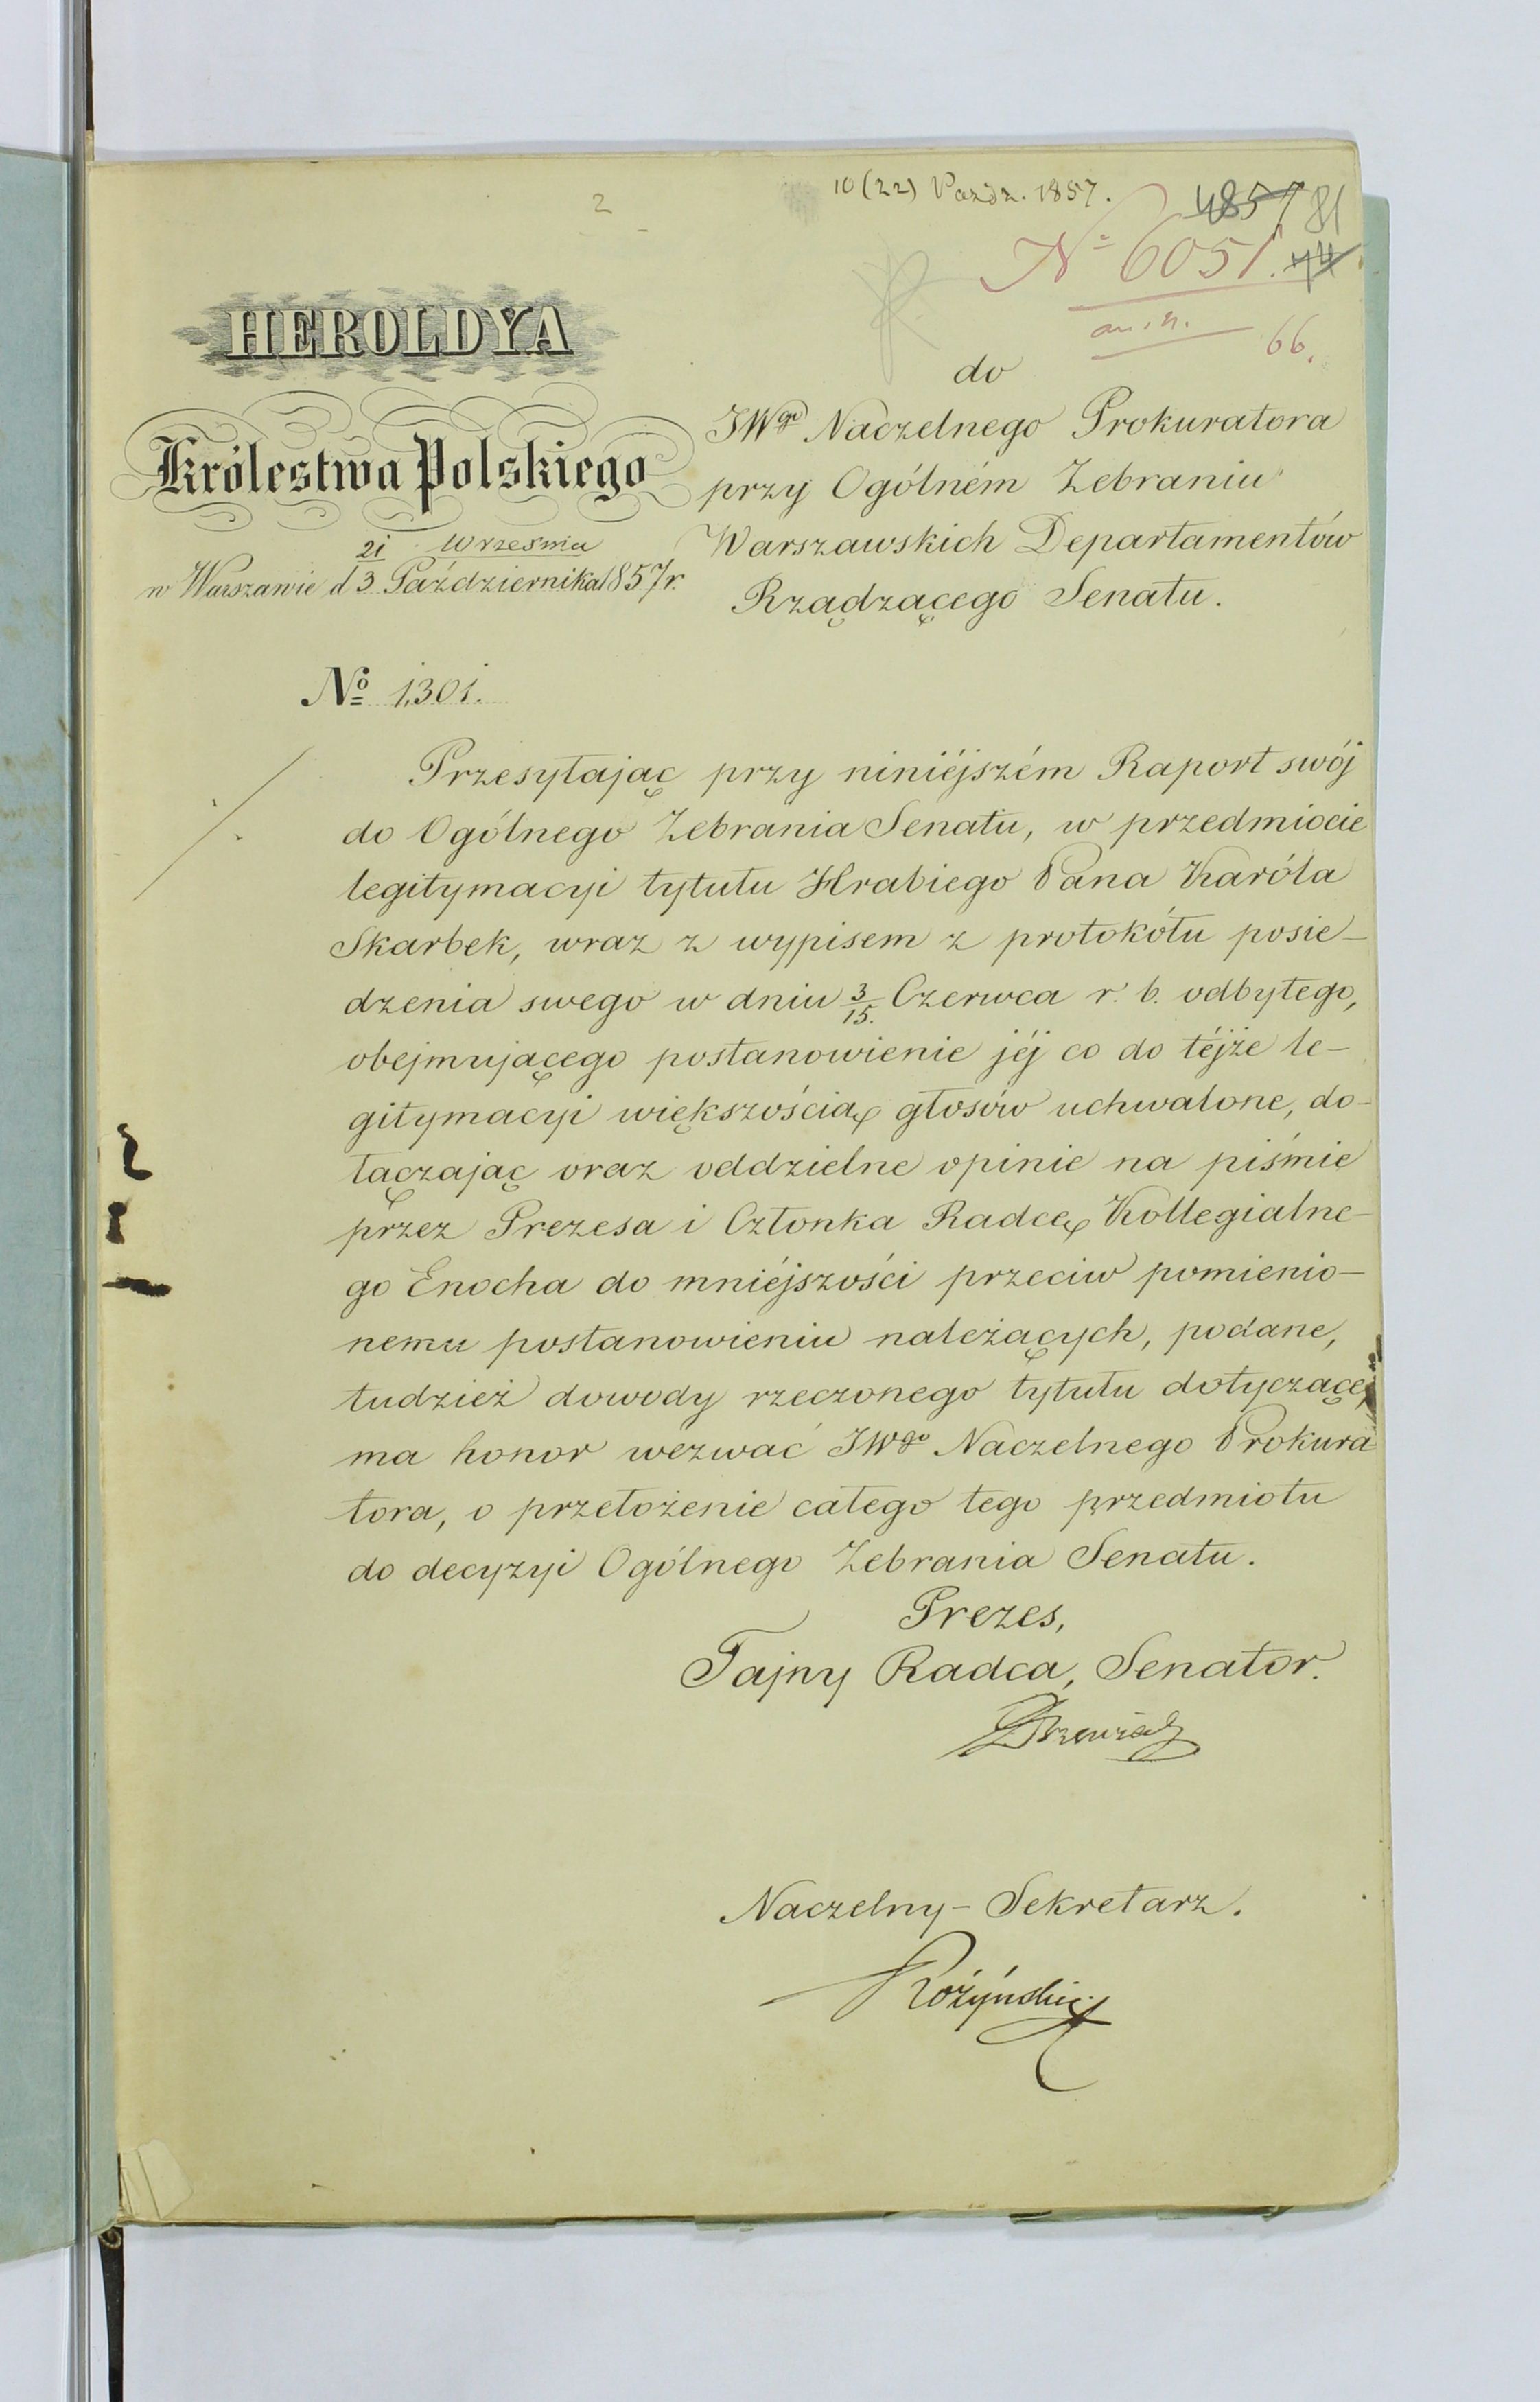 2
10 (22) Paźdz. 1857.
4857 81
№ 6051. 44
66.
HEROLDYA
Królestwa Polskiego
21 Września
w Warszawie d 3 Października 1857 r.
№ 1,301.
do
JWgo Naczelnego Prokuratora
przy Ogólném Zebraniu
Warszawskich Departamentów
Rządzącego Senatu.
Przesyłając przy niniéjszém Raport swój
do Ogólnego Zebrania Senatu, w przedmiocie
legitymacyi tytułu Hrabiego Pana Karóla
Skarbek, wraz z wypisem z protokółu posie-
dzenia swego w dniu 3/15. Czerwca r. b. odbytego,
obejmującego postanowienie jéj co do téjże le-
gitymacyi większością głosów uchwalone, do-
łączając oraz oddzielne opinie na piśmie
przez Prezesa i Członka Radcę Kollegialne-
go Enocha do mniéjszości przeciw pomienio-
nemu postanowieniu należących, podane,
tudzież dowody rzeczonego tytułu dotyczące,
ma honor wezwać JWgo Naczelnego Prokura-
tora, o przełożenie całego tego przedmiotu
do decyzyi Ogólnego Zebrania Senatu.
Prezes,
Tajny Radca, Senator.
Naczelny-Sekretarz.
Różyński